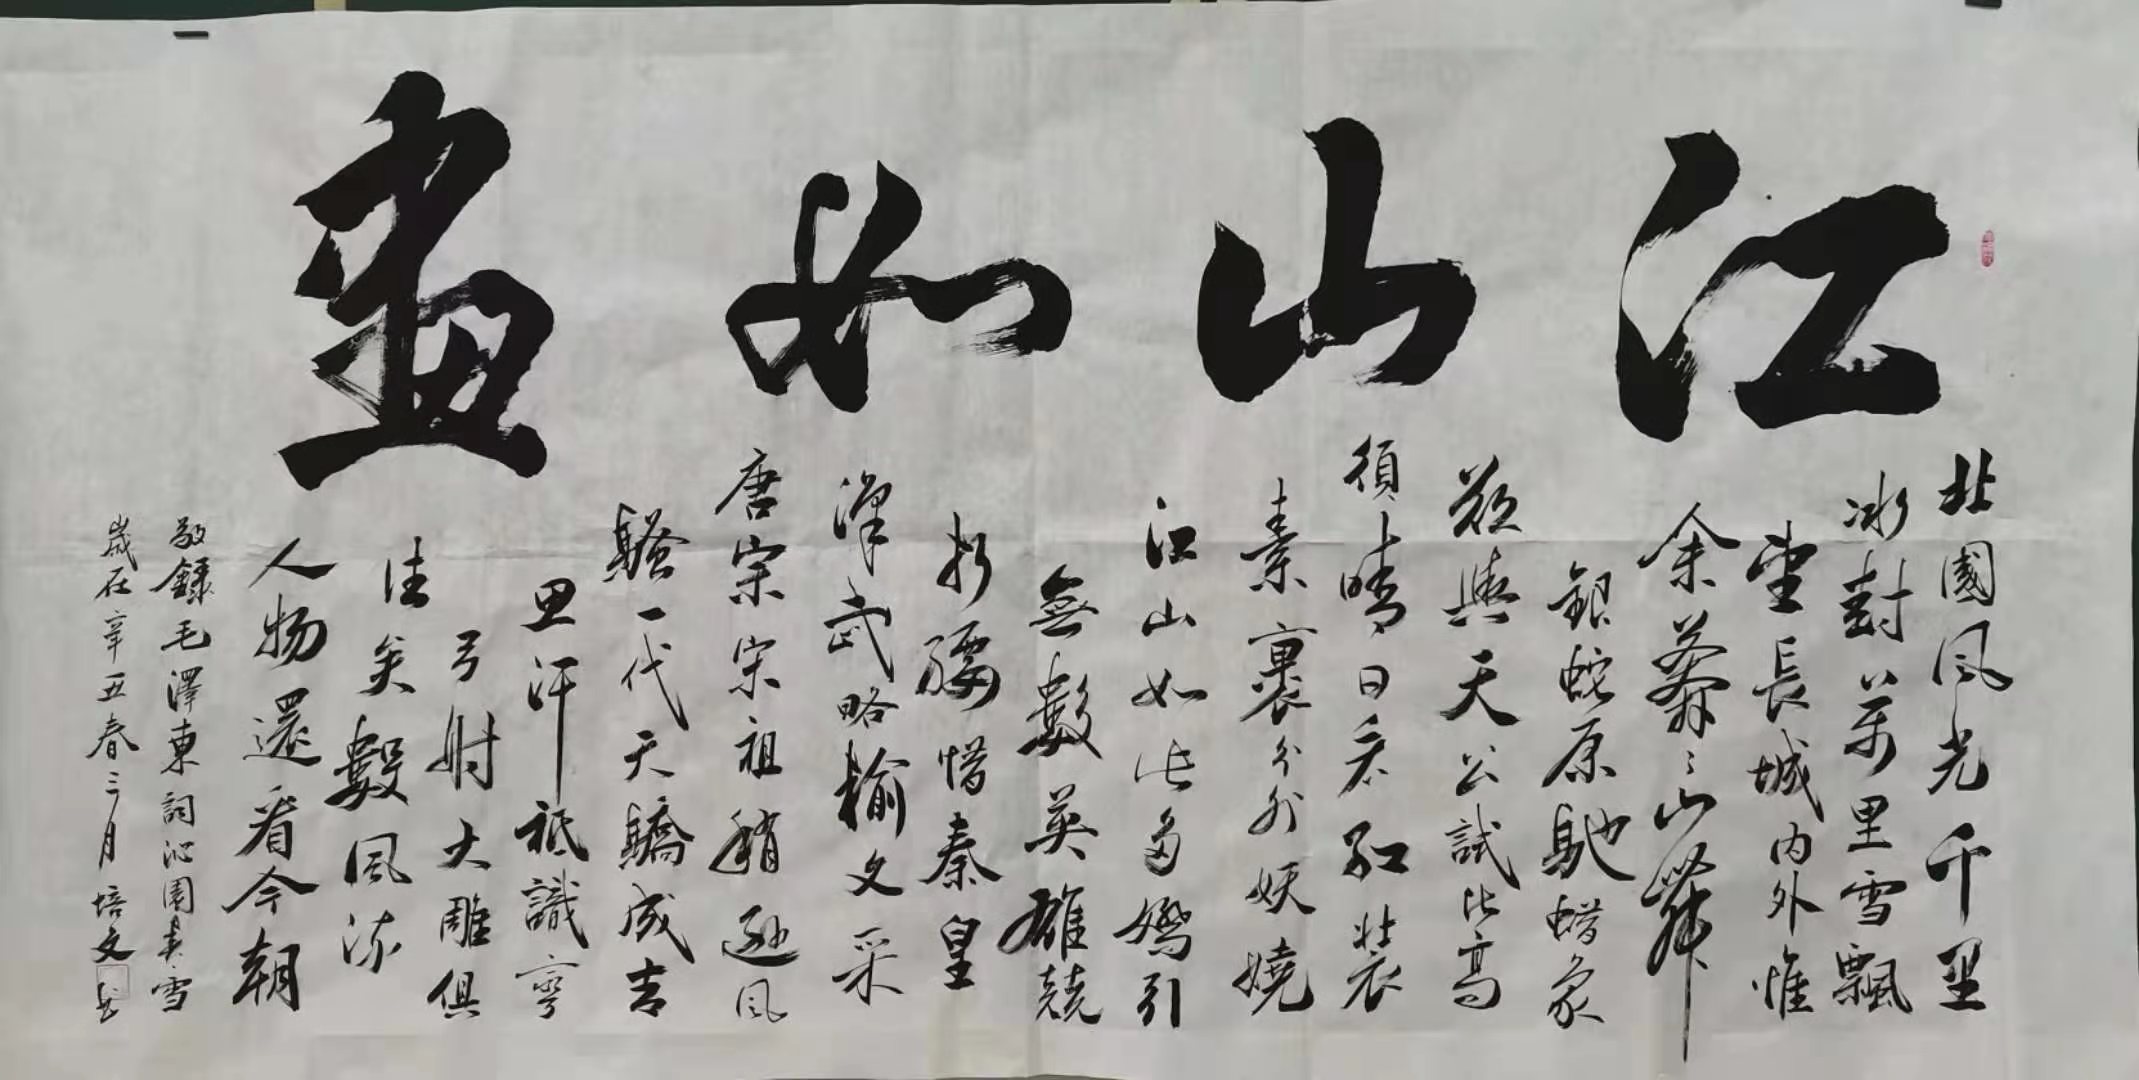 江山如畫
北國風光千里
冰封萬里雪飄
望長城內外惟
余莽〻山舞
銀蛇原馳蜡象
欲與天公試比高
須晴日看紅裝
素裹分外妖嬈
江山如此多嬌引
無數英雄競
折腰惜秦皇
漢武略輸文采
唐宗宋祖稍遜風
騷一代天驕成吉
思汗祗識彎
弓射大雕俱
往矣數風流
人物還看今朝
敬錄毛澤東詞沁園春雪
歲在辛丑春三月培文書